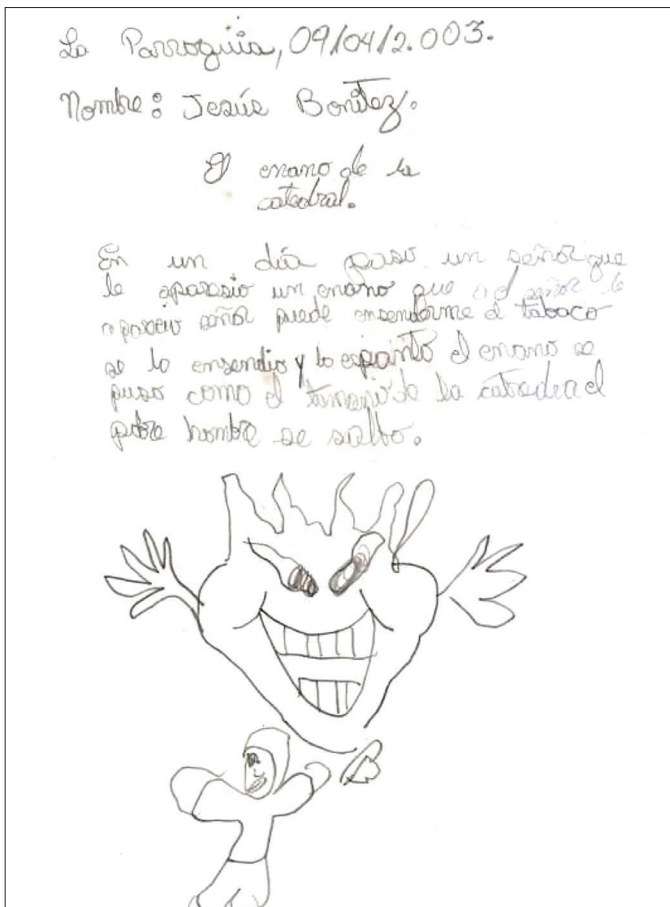 La Parroguiia, 09/04/2.003.
Nombre: Jesús Bonitez.
El enano de la
catedral.
En un día paso un señor que
le aparesio un enano que al señor le
aparecio señor puede ensenderme el tabaco
se lo ensendio y lo espanto el enano se
puso como el tamano de la catredral el
pobre hombre se salbo.